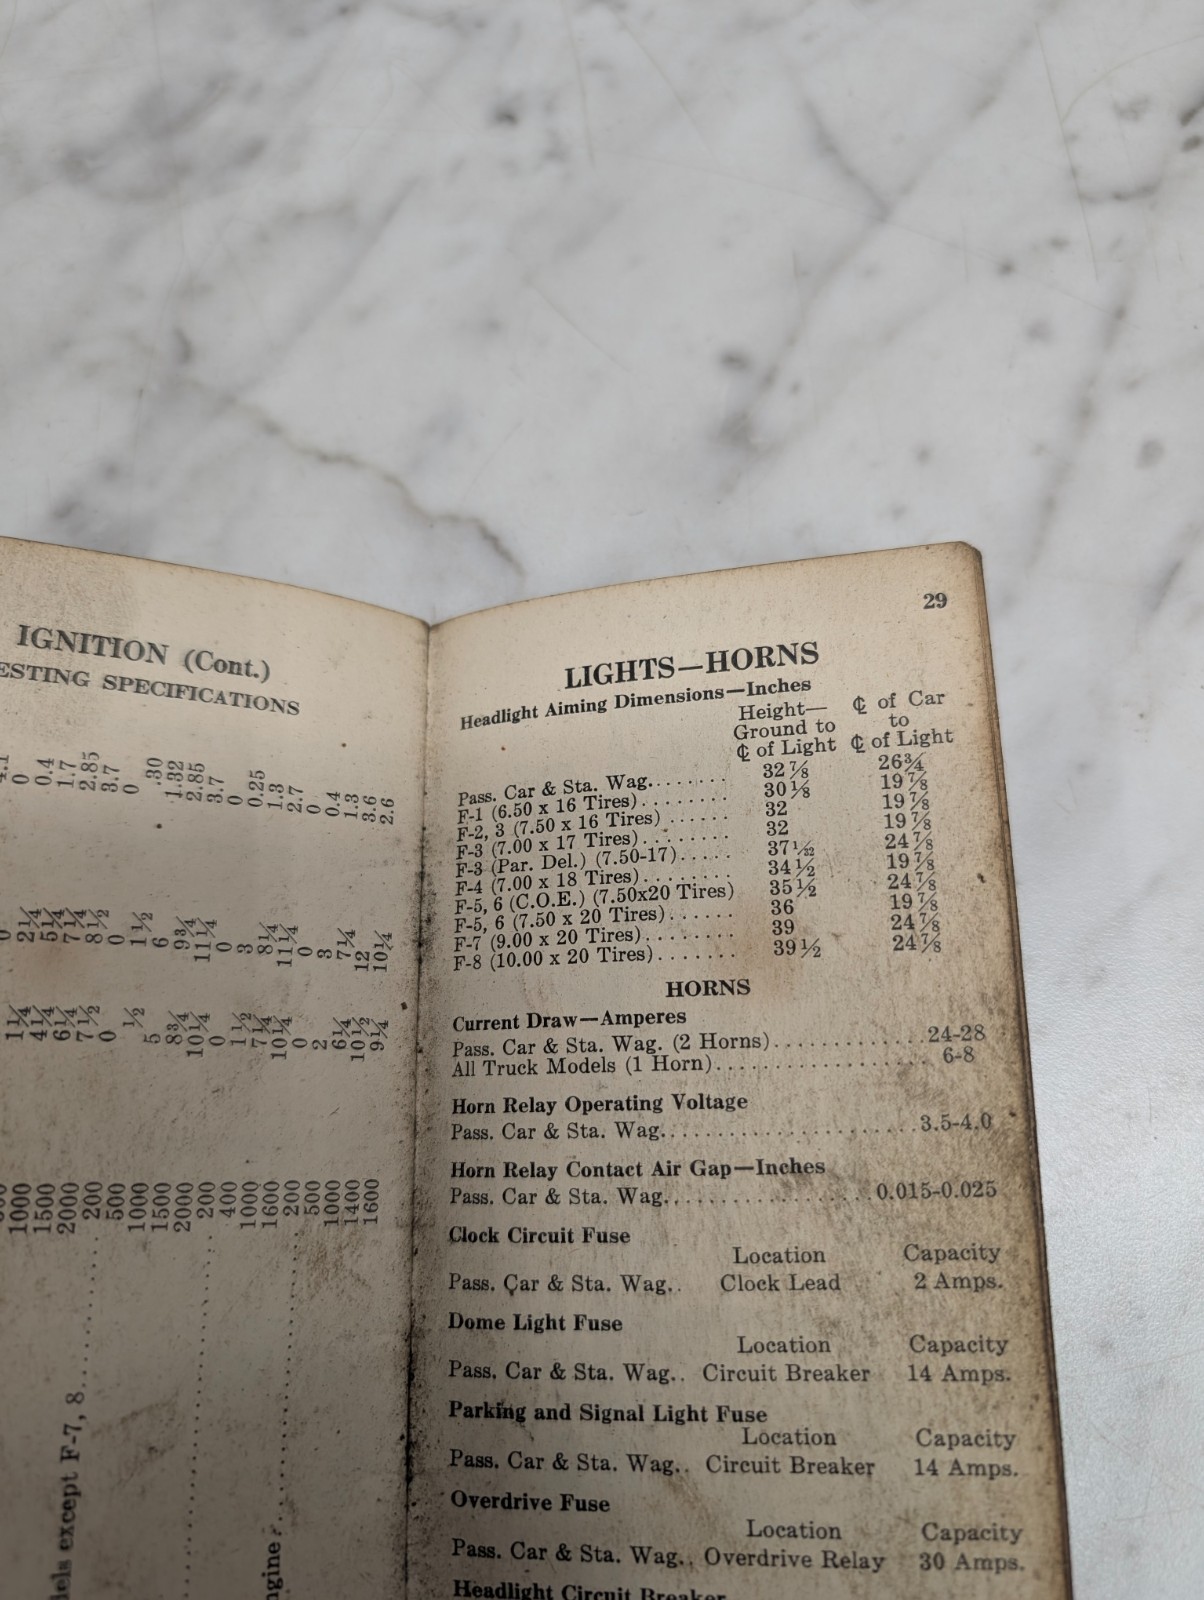 IGNITION (Cont.)
ESTING SPECIFICATIONS
0
0.4
1.7
2.85
3.7
0
.30
1.32
2.85
3.7
0
0.25
1.3
2.7
0
0.4
1.3
3.6
2.6
0
2¼
5¼
7¼
8½
0
1½
6
9¾
11¼
0
3
8¼
11¼
0
3
7¼
12
10¼
1¼
4¼
6¼
7½
0
½
5
8¾
10¼
0
1½
7¼
10¼
0
2
6¼
10½
9¼
1000
1500
2000
200
500
1000
1500
2000
200
400
1000
1600
200
500
1000
1400
1600
dels except F-7, 8
ngine
29
LIGHTS—HORNS
Headlight Aiming Dimensions—Inches
Height— ℄ of Car
Ground to to
℄ of Light ℄ of Light
Pass. Car & Sta. Wag........ 32⅞ 26¾
F-1 (6.50 x 16 Tires)........ 30⅛ 19⅞
F-2, 3 (7.50 x 16 Tires) ...... 32 19⅞
F-3 (7.00 x 17 Tires)........ 32 19⅞
F-3 (Par. Del.) (7.50-17)..... 37 1/32 24⅞
F-4 (7.00 x 18 Tires)........ 34½ 19⅞
F-5, 6 (C.O.E.) (7.50x20 Tires) 35½ 24⅞
F-5, 6 (7.50 x 20 Tires)...... 36 19⅞
F-7 (9.00 x 20 Tires)........ 39 24⅞
F-8 (10.00 x 20 Tires)....... 39½ 24⅞
HORNS
Current Draw—Amperes
Pass. Car & Sta. Wag. (2 Horns)............24-28
All Truck Models (1 Horn)................. 6-8
Horn Relay Operating Voltage
Pass. Car & Sta. Wag.....................3.5-4.0
Horn Relay Contact Air Gap—Inches
Pass. Car & Sta. Wag................ 0.015-0.025
Clock Circuit Fuse
Location Capacity
Pass. Car & Sta. Wag.. Clock Lead 2 Amps.
Dome Light Fuse
Location Capacity
Pass. Car & Sta. Wag.. Circuit Breaker 14 Amps.
Parking and Signal Light Fuse
Location Capacity
Pass. Car & Sta. Wag.. Circuit Breaker 14 Amps.
Overdrive Fuse
Location Capacity
Pass. Car & Sta. Wag.. Overdrive Relay 30 Amps.
Headlight Circuit Breaker